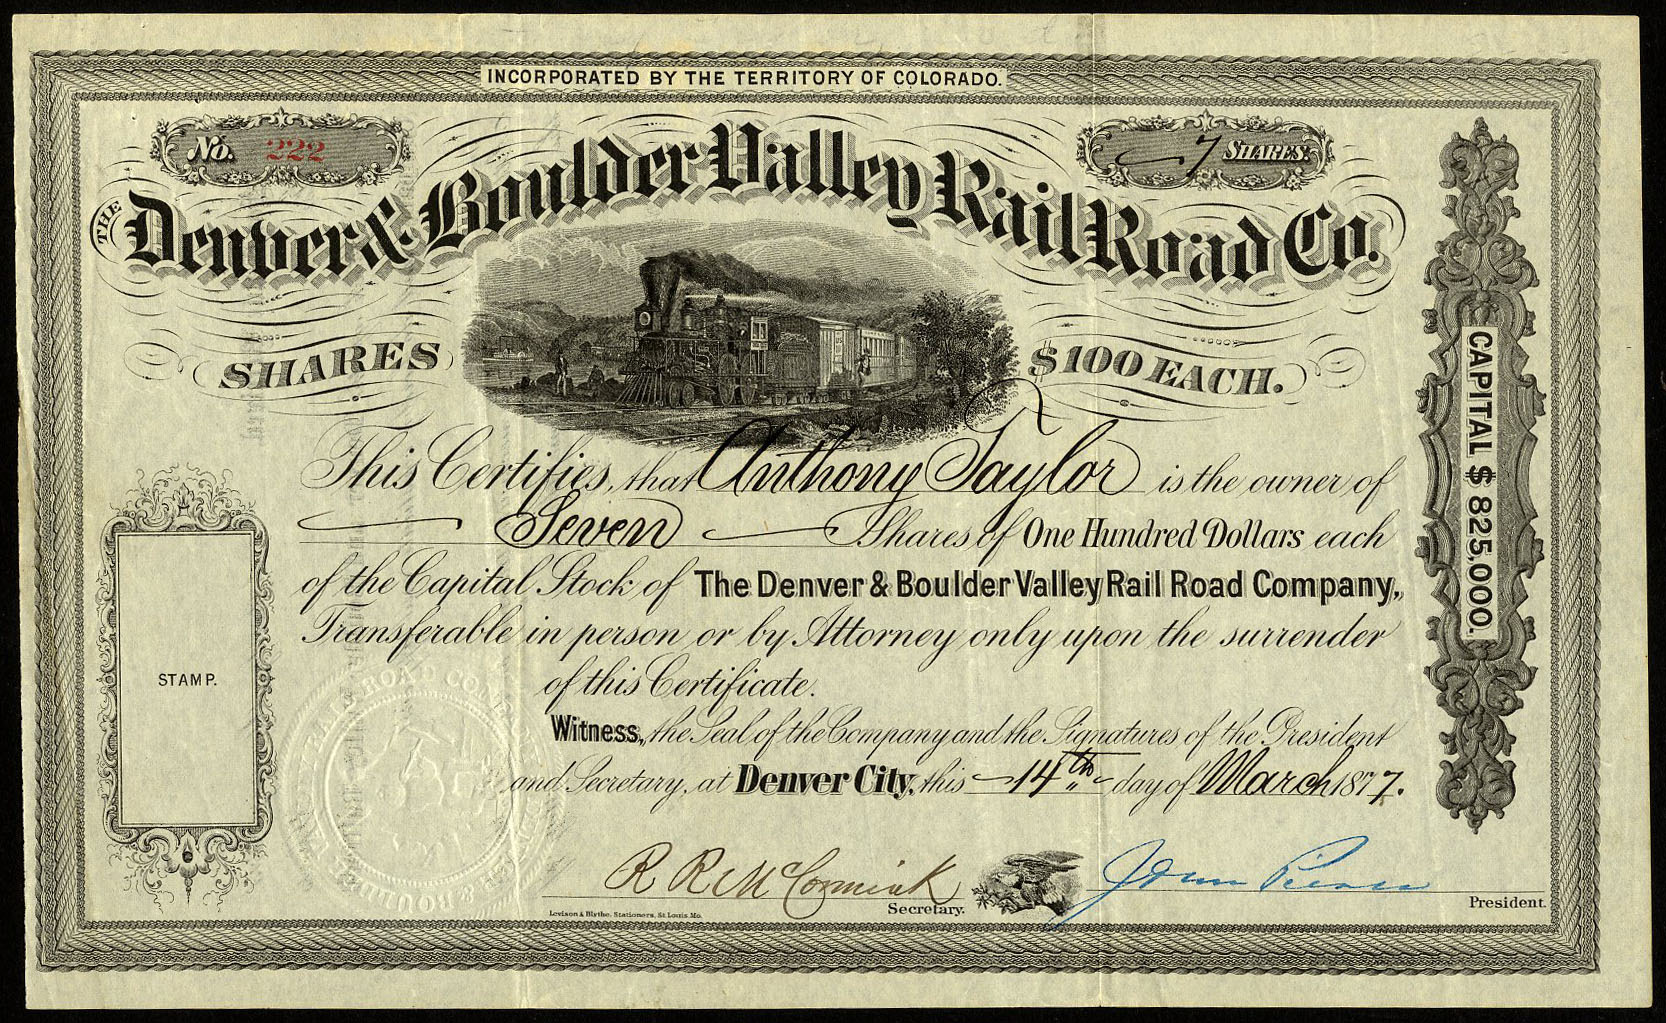 INCORPORATED BY THE TERRITORY OF COLORADO.
No. 222
7 SHARES.
THE Denver & Boulder Valley Rail Road Co.
SHARES $100 EACH.
This Certifies, that Anthony Taylor is the owner of
Seven Shares of One Hundred Dollars each
of the Capital Stock of The Denver & Boulder Valley Rail Road Company,
Transferable in person or by Attorney only upon the surrender
of this Certificate.
Witness, the Seal of the Company and the Signatures of the President
and Secretary, at Denver City, this 14th day of March 1877.
STAMP.
CAPITAL $825,000.
R R McCormick
Secretary.
John Pierce
President.
Levison & Blythe, Stationers, St Louis Mo.